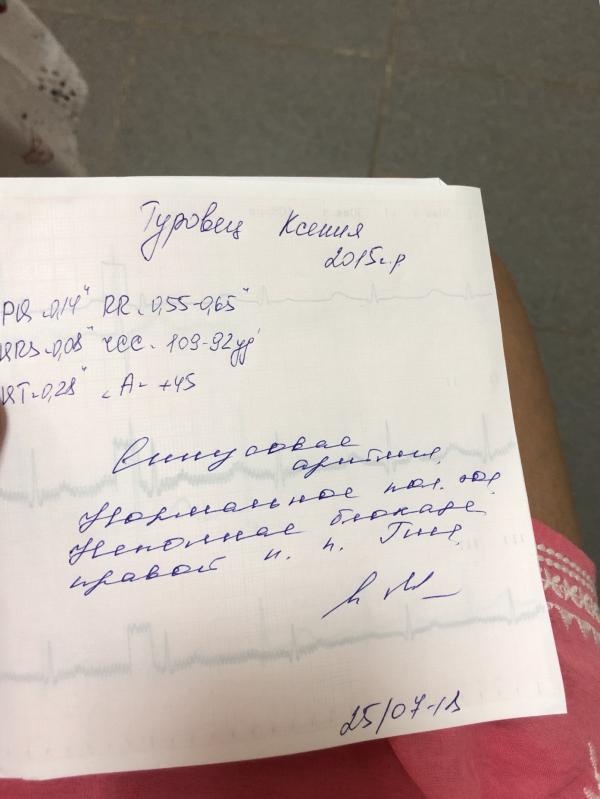 Туровец Ксения
2015г.р
PQ-0,14" RR-0,55-0,65"
QRS-0,08" ЧСС-109-92уд'
QT-0,28" <A-+45
Синусовая
аритмия.
Нормальное пол. эос.
Неполная блокада
правой н. п. Гиса.
25/07-18